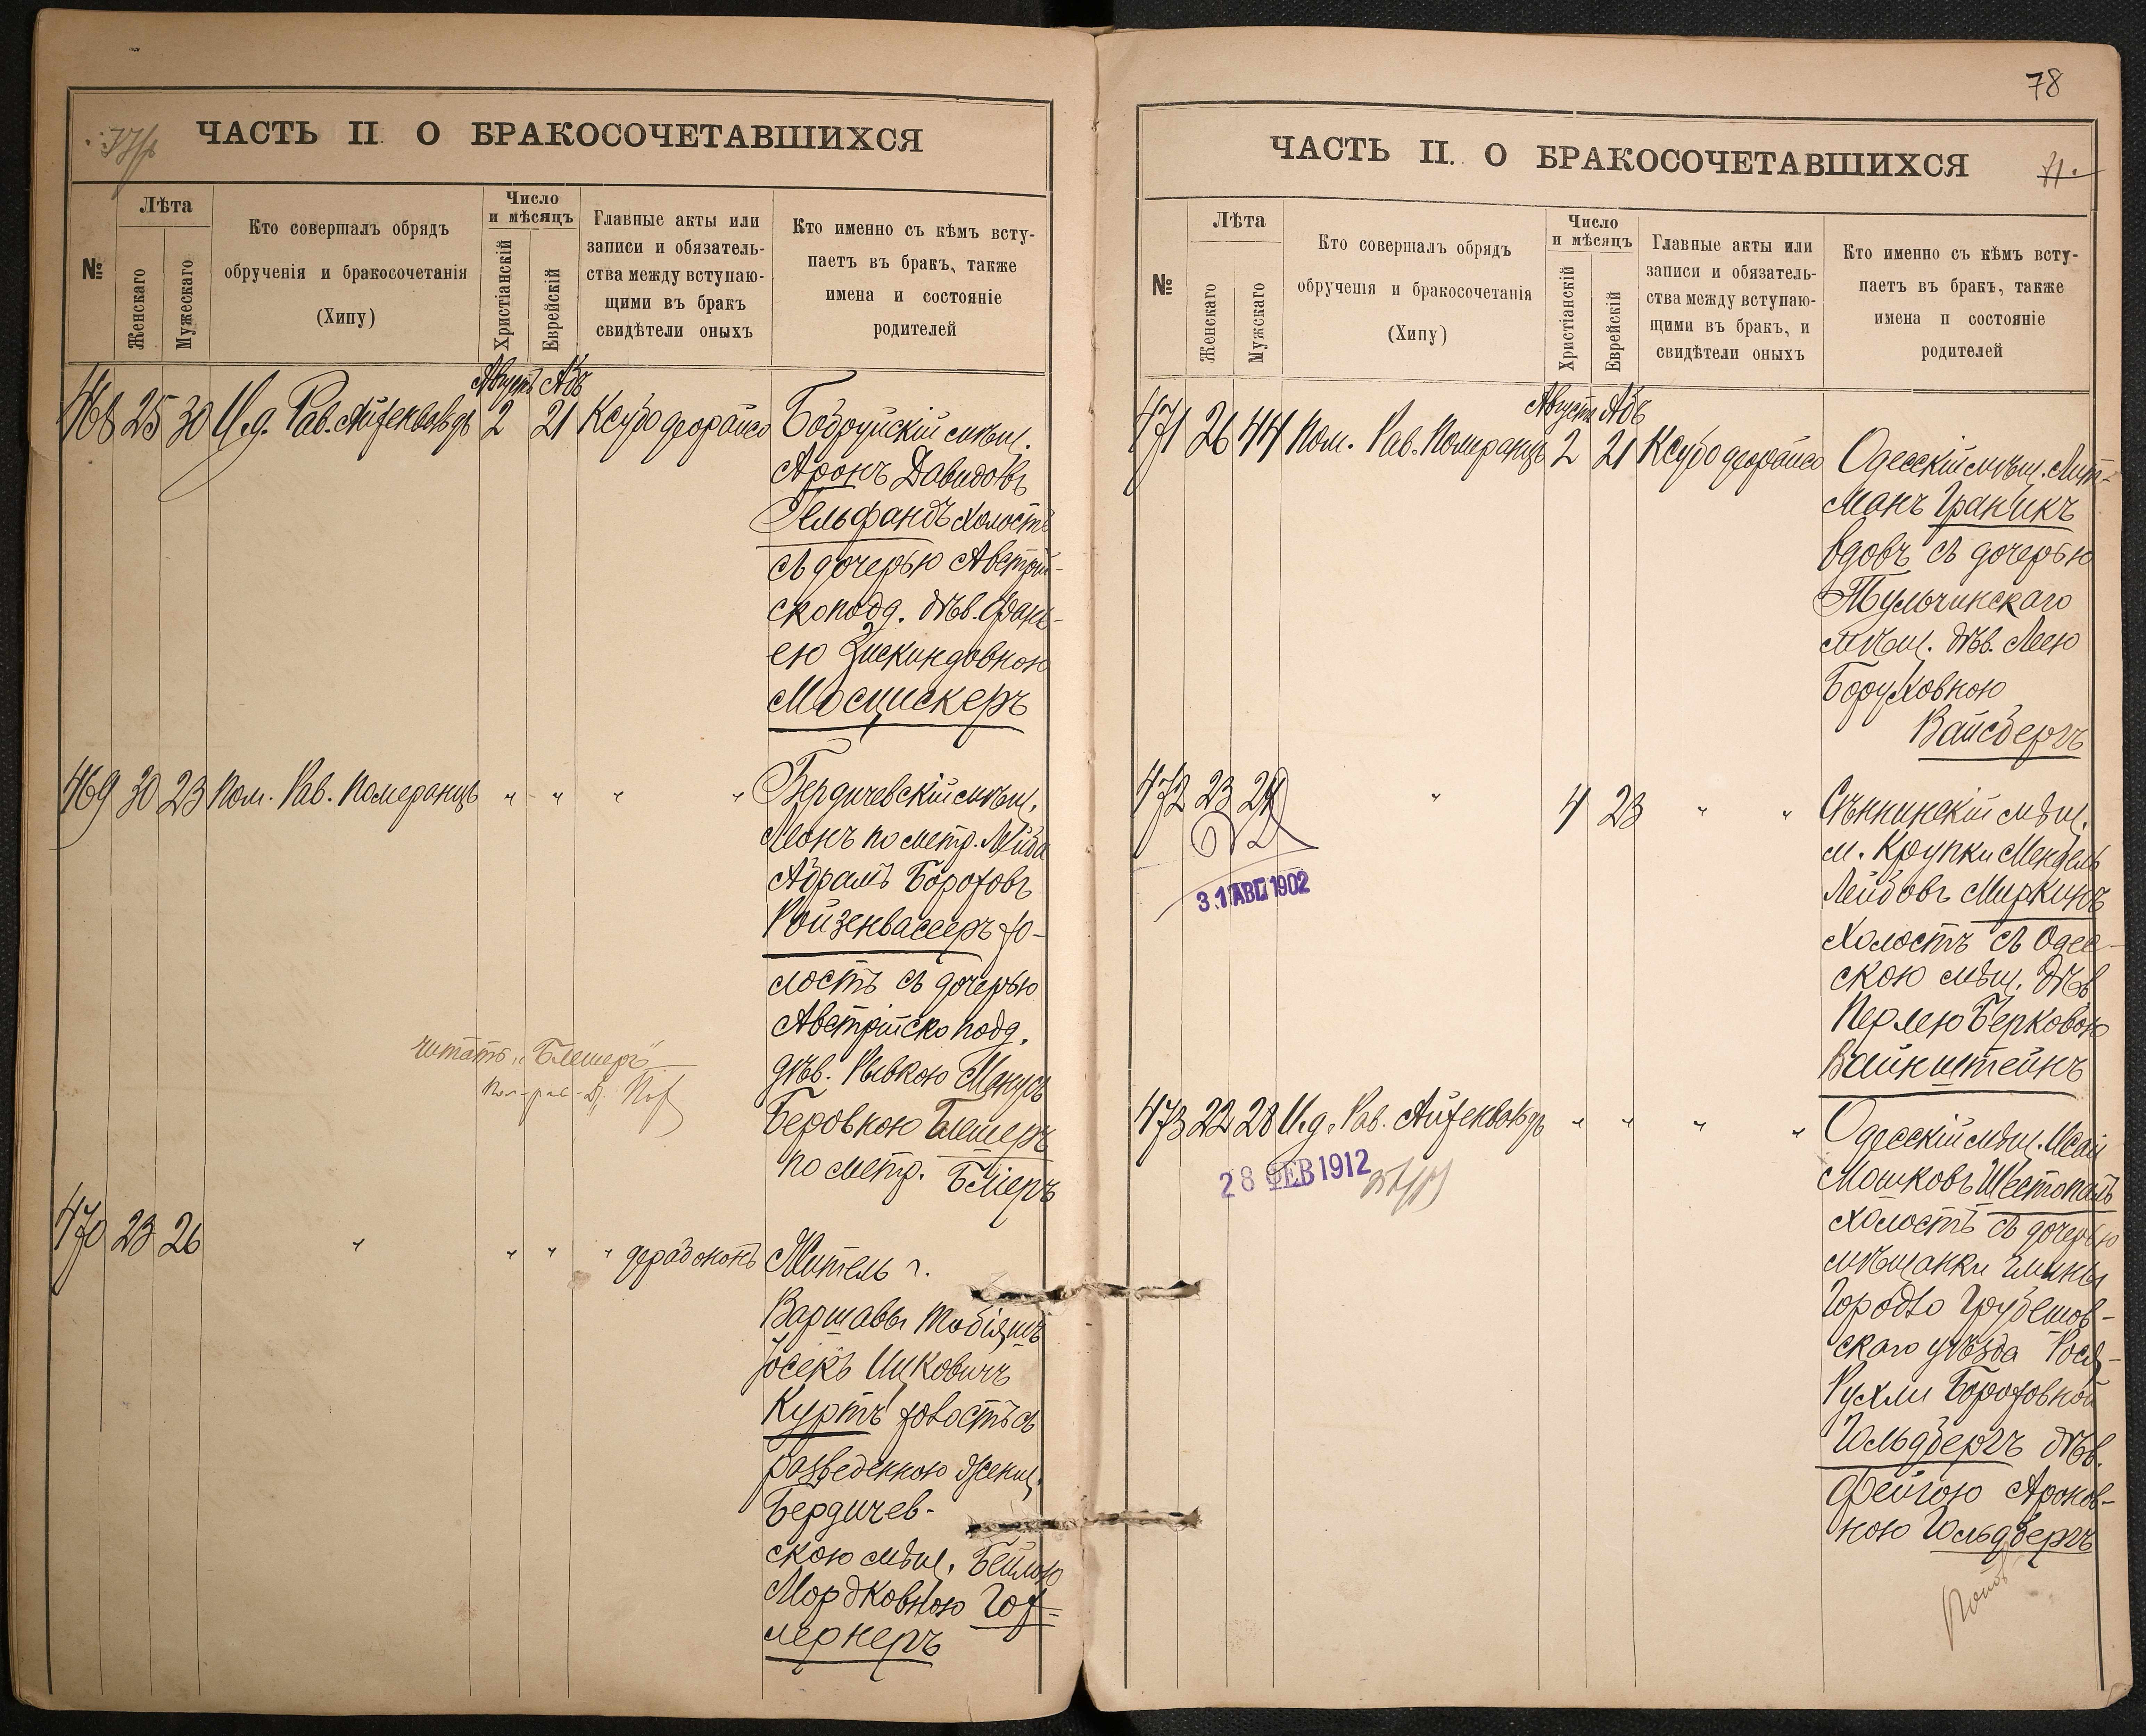 ЧАСТЬ II О БРАКОСОЧЕТАВШИХСЯ
№
Лѣта
Женскаго
Мужескаго
Кто совершалъ обрядъ
обрученія и бракосочетанія
(Хипу)
Число
и мѣсяцъ
Христіанскій
Еврейскій
Главные акты или
записи и обязатель-
ства между вступаю-
щими въ бракъ
свидѣтели оныхъ
Кто именно съ кѣмъ всту-
паетъ въ бракъ, также
имена и состояніе
родителей
Августъ Абъ
468 25 30 И.д. Рав. Айзенвальдъ 2 21 Ксубо деорайсо
Бобруйскій мѣщ.
Аронъ Давидовъ
Гельфандъ холостъ
съ дочерью Австрій-
скоподд. дѣв. Фань-
ею Зискиндовною
Мосцискеръ
469 30 23 Пом. Рав. Померанцъ " " " "
Бердичевскій мѣщ.
Леонъ по метр. Лейба
Абрамъ Бороховъ
Ройзенвассеръ хо-
лостъ съ дочерью
Австрійско подд.
дѣв. Рывкою
Беровною Блемеръ
по метр.
читать „Блемеръ"
470 23 26 " " " " дерабононъ
Житель г.
Варшавы Тобіяшъ
Іосекъ Ицковичъ
Куртъ холостъ съ
разведенною женщ.
Бердичев-
скою мѣщ. Бейлою
Мордковною Гох-
лернеръ
78
ЧАСТЬ II. О БРАКОСОЧЕТАВШИХСЯ
71.
№
Лѣта
Женскаго
Мужскаго
Кто совершалъ обрядъ
обрученія и бракосочетанія
(Хипу)
Число
и мѣсяцъ
Христіанскій
Еврейскій
Главные акты или
записи и обязатель-
ства между вступаю-
щими въ бракъ, и
свидѣтели оныхъ
Кто именно съ кѣмъ всту-
паетъ въ бракъ, также
имена и состояніе
родителей
Августъ Абъ
471 26 44 Пом. Рав. Померанцъ 2 21 Ксубо деорайсо
Одесскій мѣщ. Лит-
манъ Граникъ
вдовъ съ дочерью
Тульчинскаго
мѣщ. дѣв. Леею
Боруховною
Вайсбергъ
472 23 24 " 4 23 " "
31 АВГ 1902
Сѣннинскій мѣщ.
м. Крупки Мендель
Лейбовъ Миркинъ
холостъ съ Одес-
скою мѣщ. дѣв
Перлею Берковою
Вайнштейнъ
473 22 28 И.д. Рав. Айзенвальдъ " " " "
28 ФЕВ 1912
Одесскій мѣщ. Исай
Мошковъ Шестопалъ
холостъ съ дочерью
мѣщанки гмины
Городло Грубешов-
скаго уѣзда
Рухли Бороховной
Гольдбергъ дѣв.
Фейгою Аронов-
ною Гольдбергъ